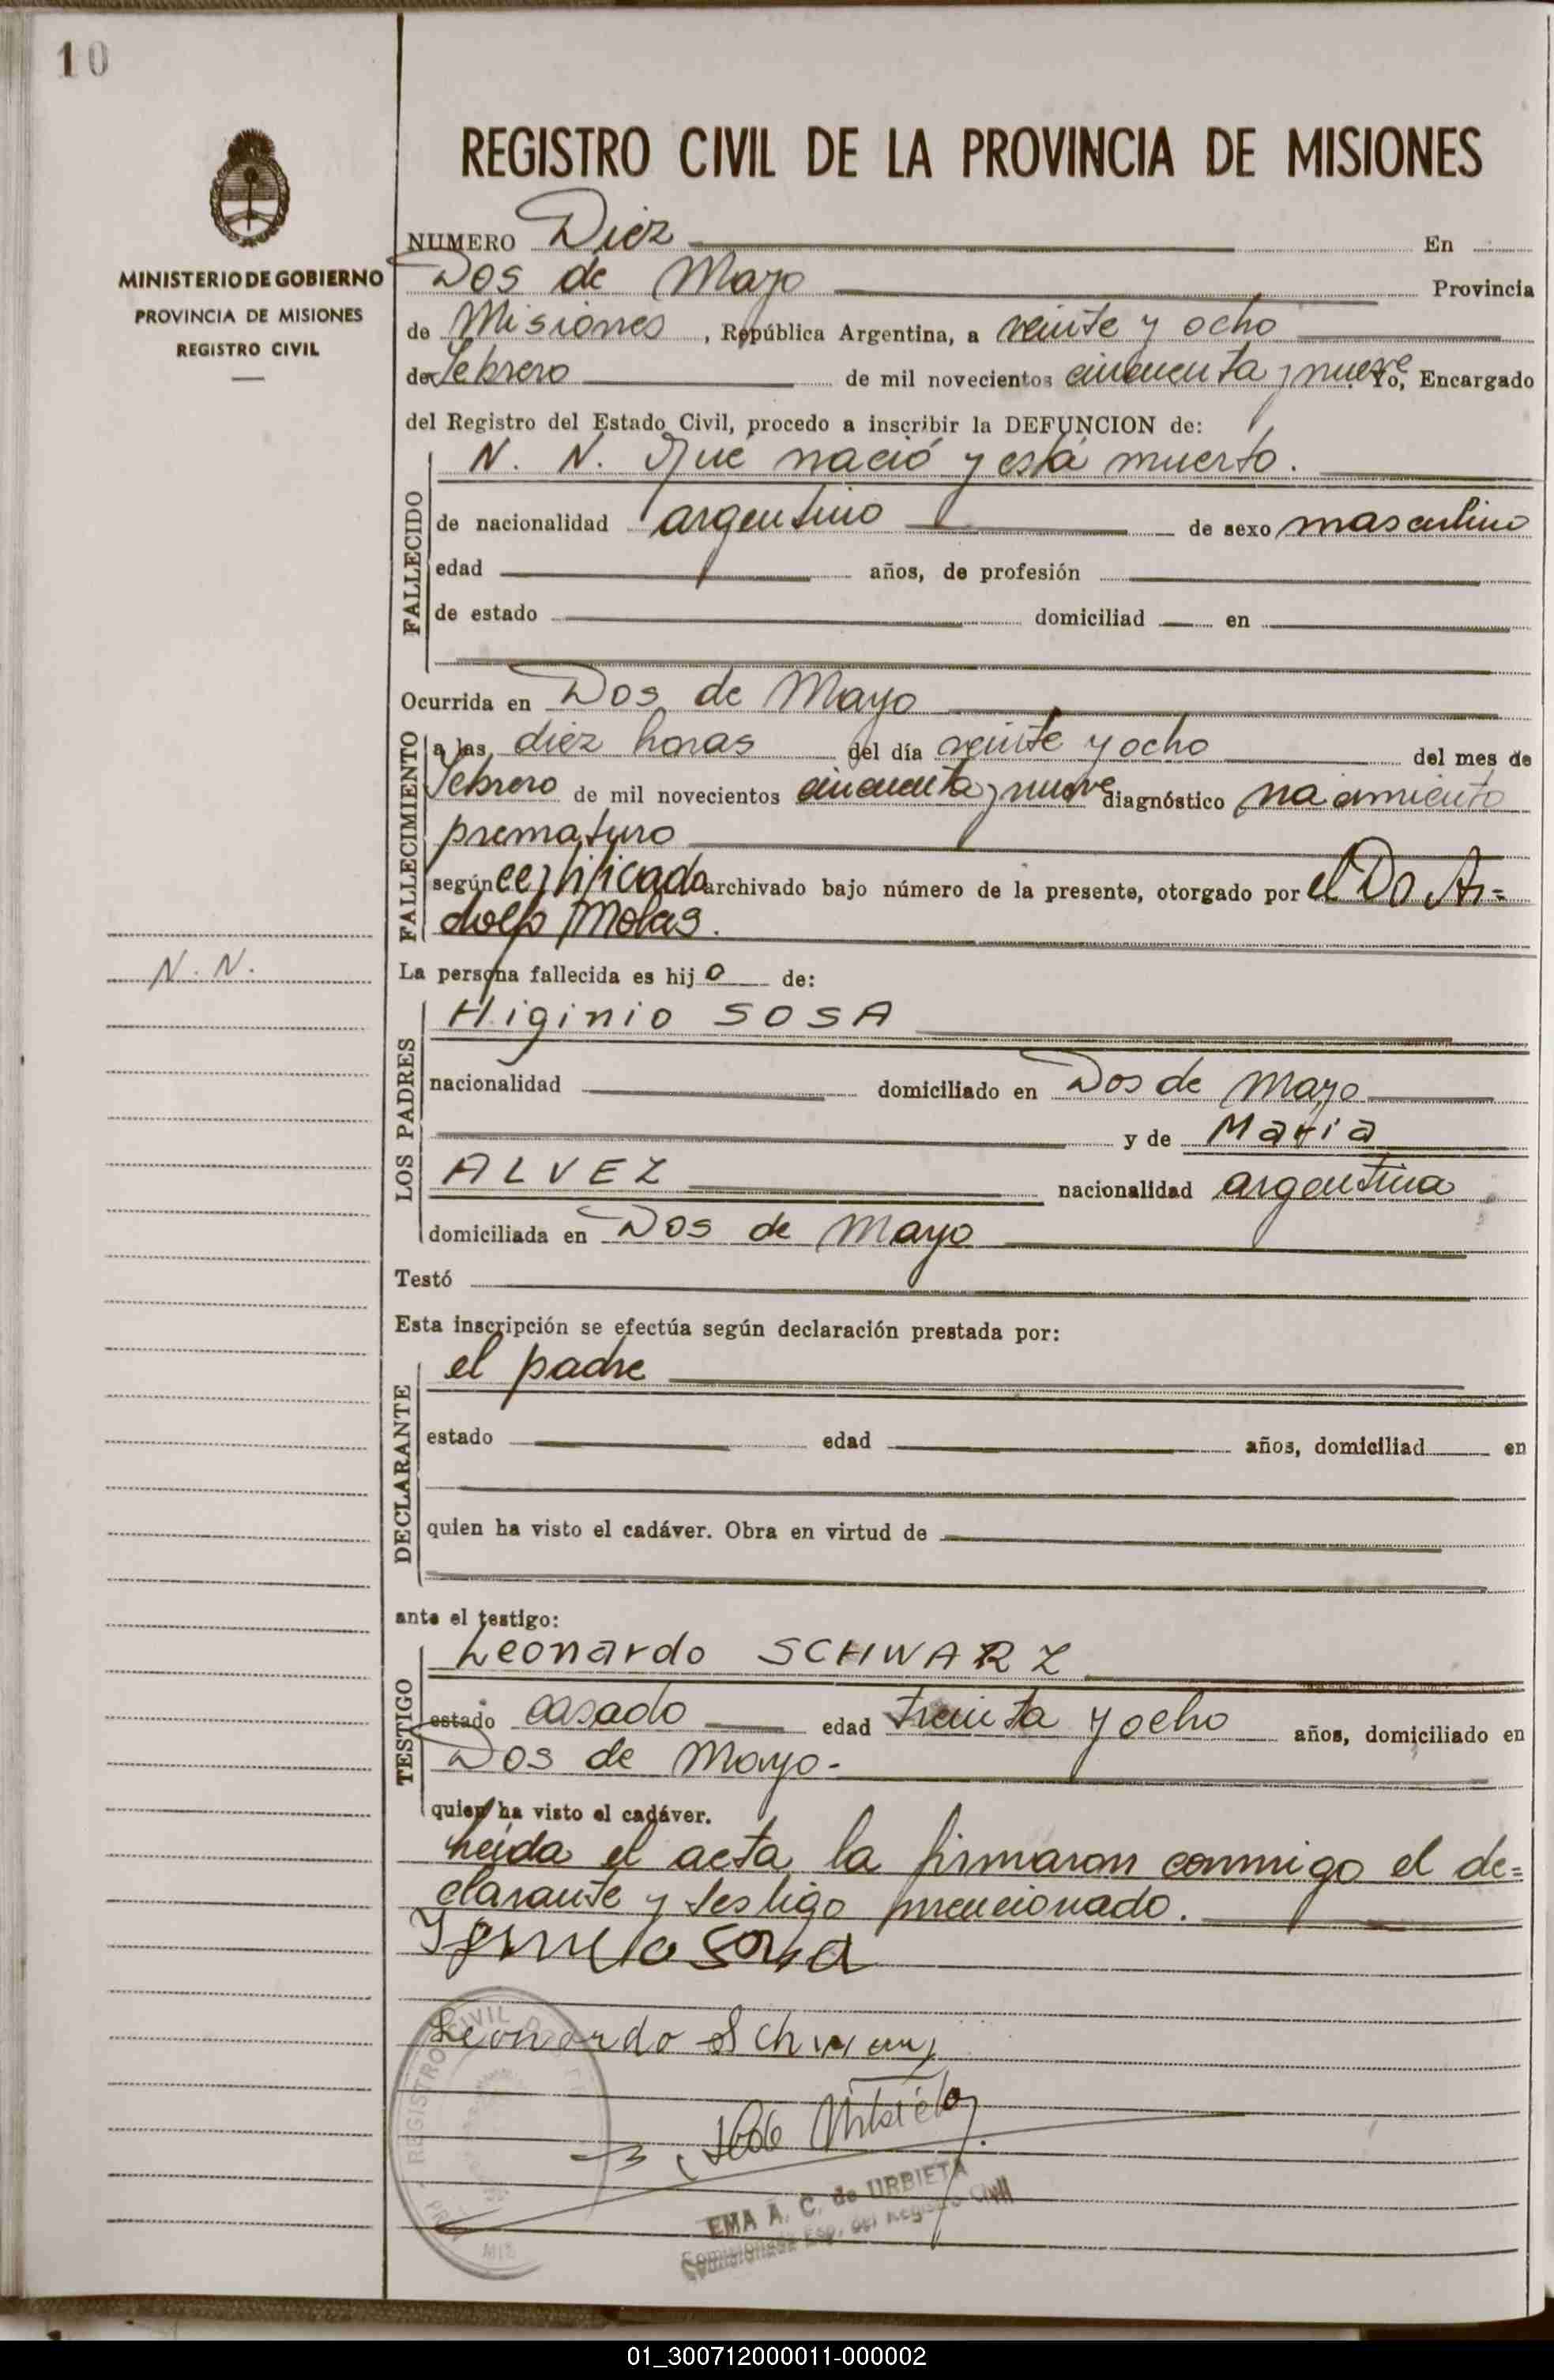 10
REGISTRO CIVIL DE LA PROVINCIA DE MISIONES
MINISTERIO DE GOBIERNO
PROVINCIA DE MISIONES
REGISTRO CIVIL
NUMERO Diez En
Dos de Mayo Provincia
de Misiones, República Argentina, a veinte y ocho
de febrero de mil novecientos cincuenta y nueve Yo, Encargado
del Registro del Estado Civil, procedo a inscribir la DEFUNCION de:
FALLECIDO
N. N. Que nació y está muerto.
de nacionalidad argentino de sexo masculino
edad años, de profesión
de estado domiciliad en
Ocurrida en Dos de Mayo
FALLECIMIENTO
a las diez horas del día veinte y ocho del mes de
febrero de mil novecientos cincuenta y nueve diagnóstico nacimiento
prematuro
según certificado archivado bajo número de la presente, otorgado por el Dr
Molas.
N. N.
La persona fallecida es hijo de:
LOS PADRES
Higinio SOSA
nacionalidad domiciliado en Dos de Mayo
y de Maria
ALVEZ nacionalidad argentina
domiciliada en Dos de Mayo
Testó
Esta inscripción se efectúa según declaración prestada por:
DECLARANTE
el padre
estado edad años, domiciliad en
quien ha visto el cadáver. Obra en virtud de
ante el testigo:
TESTIGO
Leonardo SCHWARZ
estado casado edad treinta y ocho años, domiciliado en
Dos de Mayo.-
quien ha visto el cadáver.
Leída el acta la firmaron conmigo el de=
clarante y testigo mencionado.
Sosa
Leonardo Schwarz
REGISTRO CIVIL
EMA A. C. de URBIETA
Comisionada Esp. del Registro Civil
01_300712000011-000002